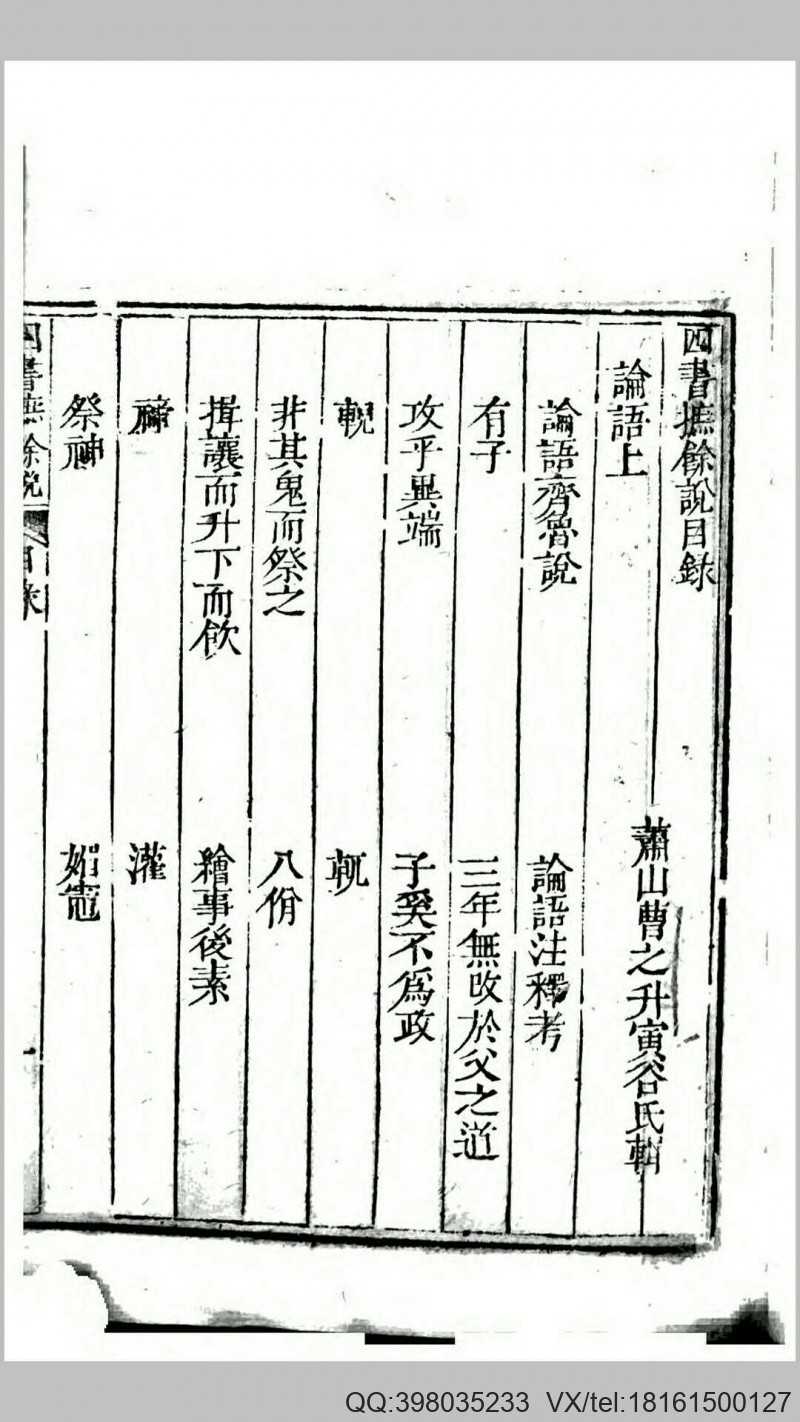 四書摭餘說目録
蕭山曹之升寅谷氏輯
論語上
論語齊魯說
論語注釋考
有子
三年無改於父之道
攻乎異端
子奚不爲政
輗
軏
非其鬼而祭之
八佾
揖讓而升下而飲
繪事後素
禘
灌
祭神
媚竈
四書摭餘說
目錄
一
QQ:398035233 VX/tel:18161500127